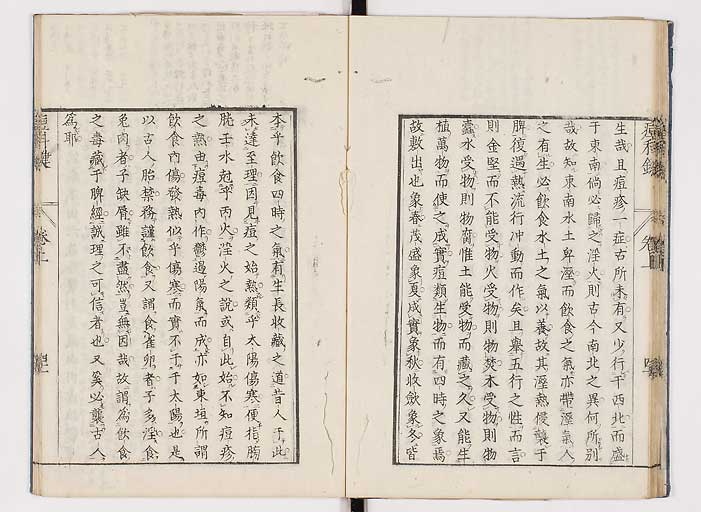 生哉且痘疹一症古所未有又少行于西北而盛
于東南倘必歸之淫火則古今南北之異何所別
哉故知東南水土卑溼而飲食之氣亦帶溼氣人
之有生必飲食水土之氣以養故其溼熱侵襲于
脾復遇熱流行冲動而作矣且舉五行之性而言
則金堅而不能受物火受物則物焚木受物則物
蠹水受物則物腐惟土能受物而藏之久又能生
植萬物而使之成實痘類生物而有四時之象焉
故敷出也象春茂盛象夏成實象秋收斂象冬皆
本乎飲食四時之氣有生長收藏之道昔人于此
未達至理因見痘之始熱類乎太陽傷寒便指膀
胱壬水尅乎丙火淫火之說或自此始不知痘疹
之熱由痘毒內作鬱遏陽氣而成亦如東垣所謂
飲食內傷發熱似乎傷寒而實不干于太陽也是
以古人胎禁務謹飲食又謂食雀卵者子多淫食
兔肉者子缺脣雖不盡然豈無因哉故謂爲飲食
之毒藏于脾經誠理之可信者也又奚必襲古人
爲耶
痘科鍵
卷上